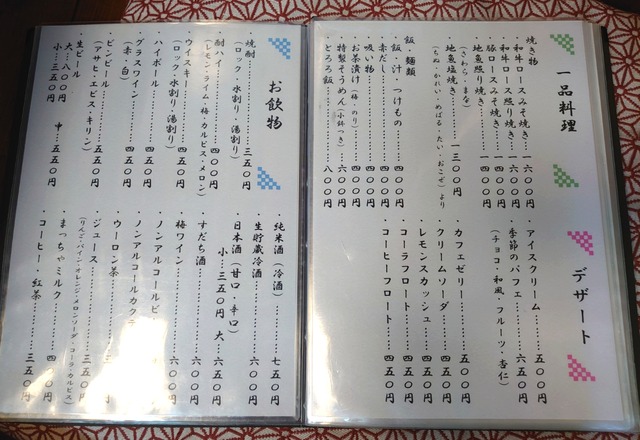 一品料理
焼き物
和牛ロースみそ焼き…一六〇〇円
和牛ロース照り焼き…一六〇〇円
豚ロースみそ焼き………一四〇〇円
地魚照り焼き……………一四〇〇円
(さわら・まな)
地魚塩焼き………一三〇〇円
(ちぬ・かれい・めばる・たい・おこぜ)より
飯・麺類
飯・汁・つけもの………四〇〇円
赤だし……………………四〇〇円
吸い物……………………四〇〇円
お茶漬け(梅・のり)……四〇〇円
特製そうめん(小鉢つき)…六〇〇円
とろろ飯…………………八〇〇円
デザート
アイスクリーム……五〇〇円
季節のパフェ………六五〇円
(チョコ・和風・フルーツ・杏仁)
カフェゼリー………五〇〇円
クリームソーダ……四五〇円
レモンスカッシュ…四五〇円
コーラフロート……四五〇円
コーヒーフロート…四五〇円
お飲物
焼酎………………三五〇円
(ロック・水割り・湯割り)
酎ハイ……………四〇〇円
(レモン・ライム・梅・カルピス・メロン)
ウイスキー………四五〇円
(ロック・水割り・湯割り)
ハイボール………四五〇円
グラスワイン……四五〇円
(赤・白)
ビンビール………五五〇円
(アサヒ・エビス・キリン)
生ビール
大…八〇〇円 中…五五〇円
小…三五〇円
純米酒(冷酒)……七五〇円
生貯蔵冷酒………六〇〇円
日本酒(甘口・辛口)
小…三五〇円 大…六五〇円
すだち酒…………六〇〇円
梅ワイン…………六〇〇円
ノンアルコールビ
ノンアルコールカクテ
ウーロン茶………三
ジュース…………三五〇円
(りんご・パイン・オレンジ・メロンソーダ・コーラ・カルピス)
まっちゃミルク…四五〇円
コーヒー・紅茶…三五〇円